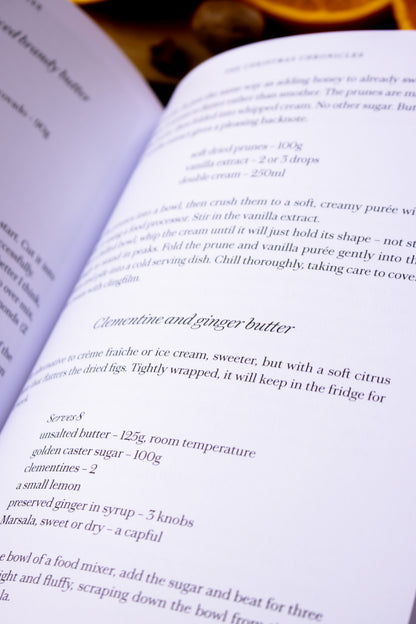 brandy butter
90g
start. Cut it into
successfully.
better I think,
over mix,
of the
THE CHRISTMAS CHRONICLES
the same way as adding honey to already sw
rather than smoother. The prunes are ma
then folded into whipped cream. No other sugar. But
gives a pleasing backnote.
soft dried prunes – 100g
vanilla extract – 2 or 3 drops
double cream – 250ml
into a bowl, then crush them to a soft, creamy purée wi
using a food processor. Stir in the vanilla extract.
bowl, whip the cream until it will just hold its shape – not st
stand in peaks. Fold the prune and vanilla purée gently into th
into a cold serving dish. Chill thoroughly, taking care to cove
with clingfilm.
Clementine and ginger butter
alternative to crème fraîche or ice cream, sweeter, but with a soft citrus
that flatters the dried figs. Tightly wrapped, it will keep in the fridge for
Serves 8
unsalted butter – 125g, room temperature
golden caster sugar – 100g
clementines – 2
a small lemon
preserved ginger in syrup – 3 knobs
Marsala, sweet or dry – a capful
e bowl of a food mixer, add the sugar and beat for three
ight and fluffy, scraping down the bowl from
la.